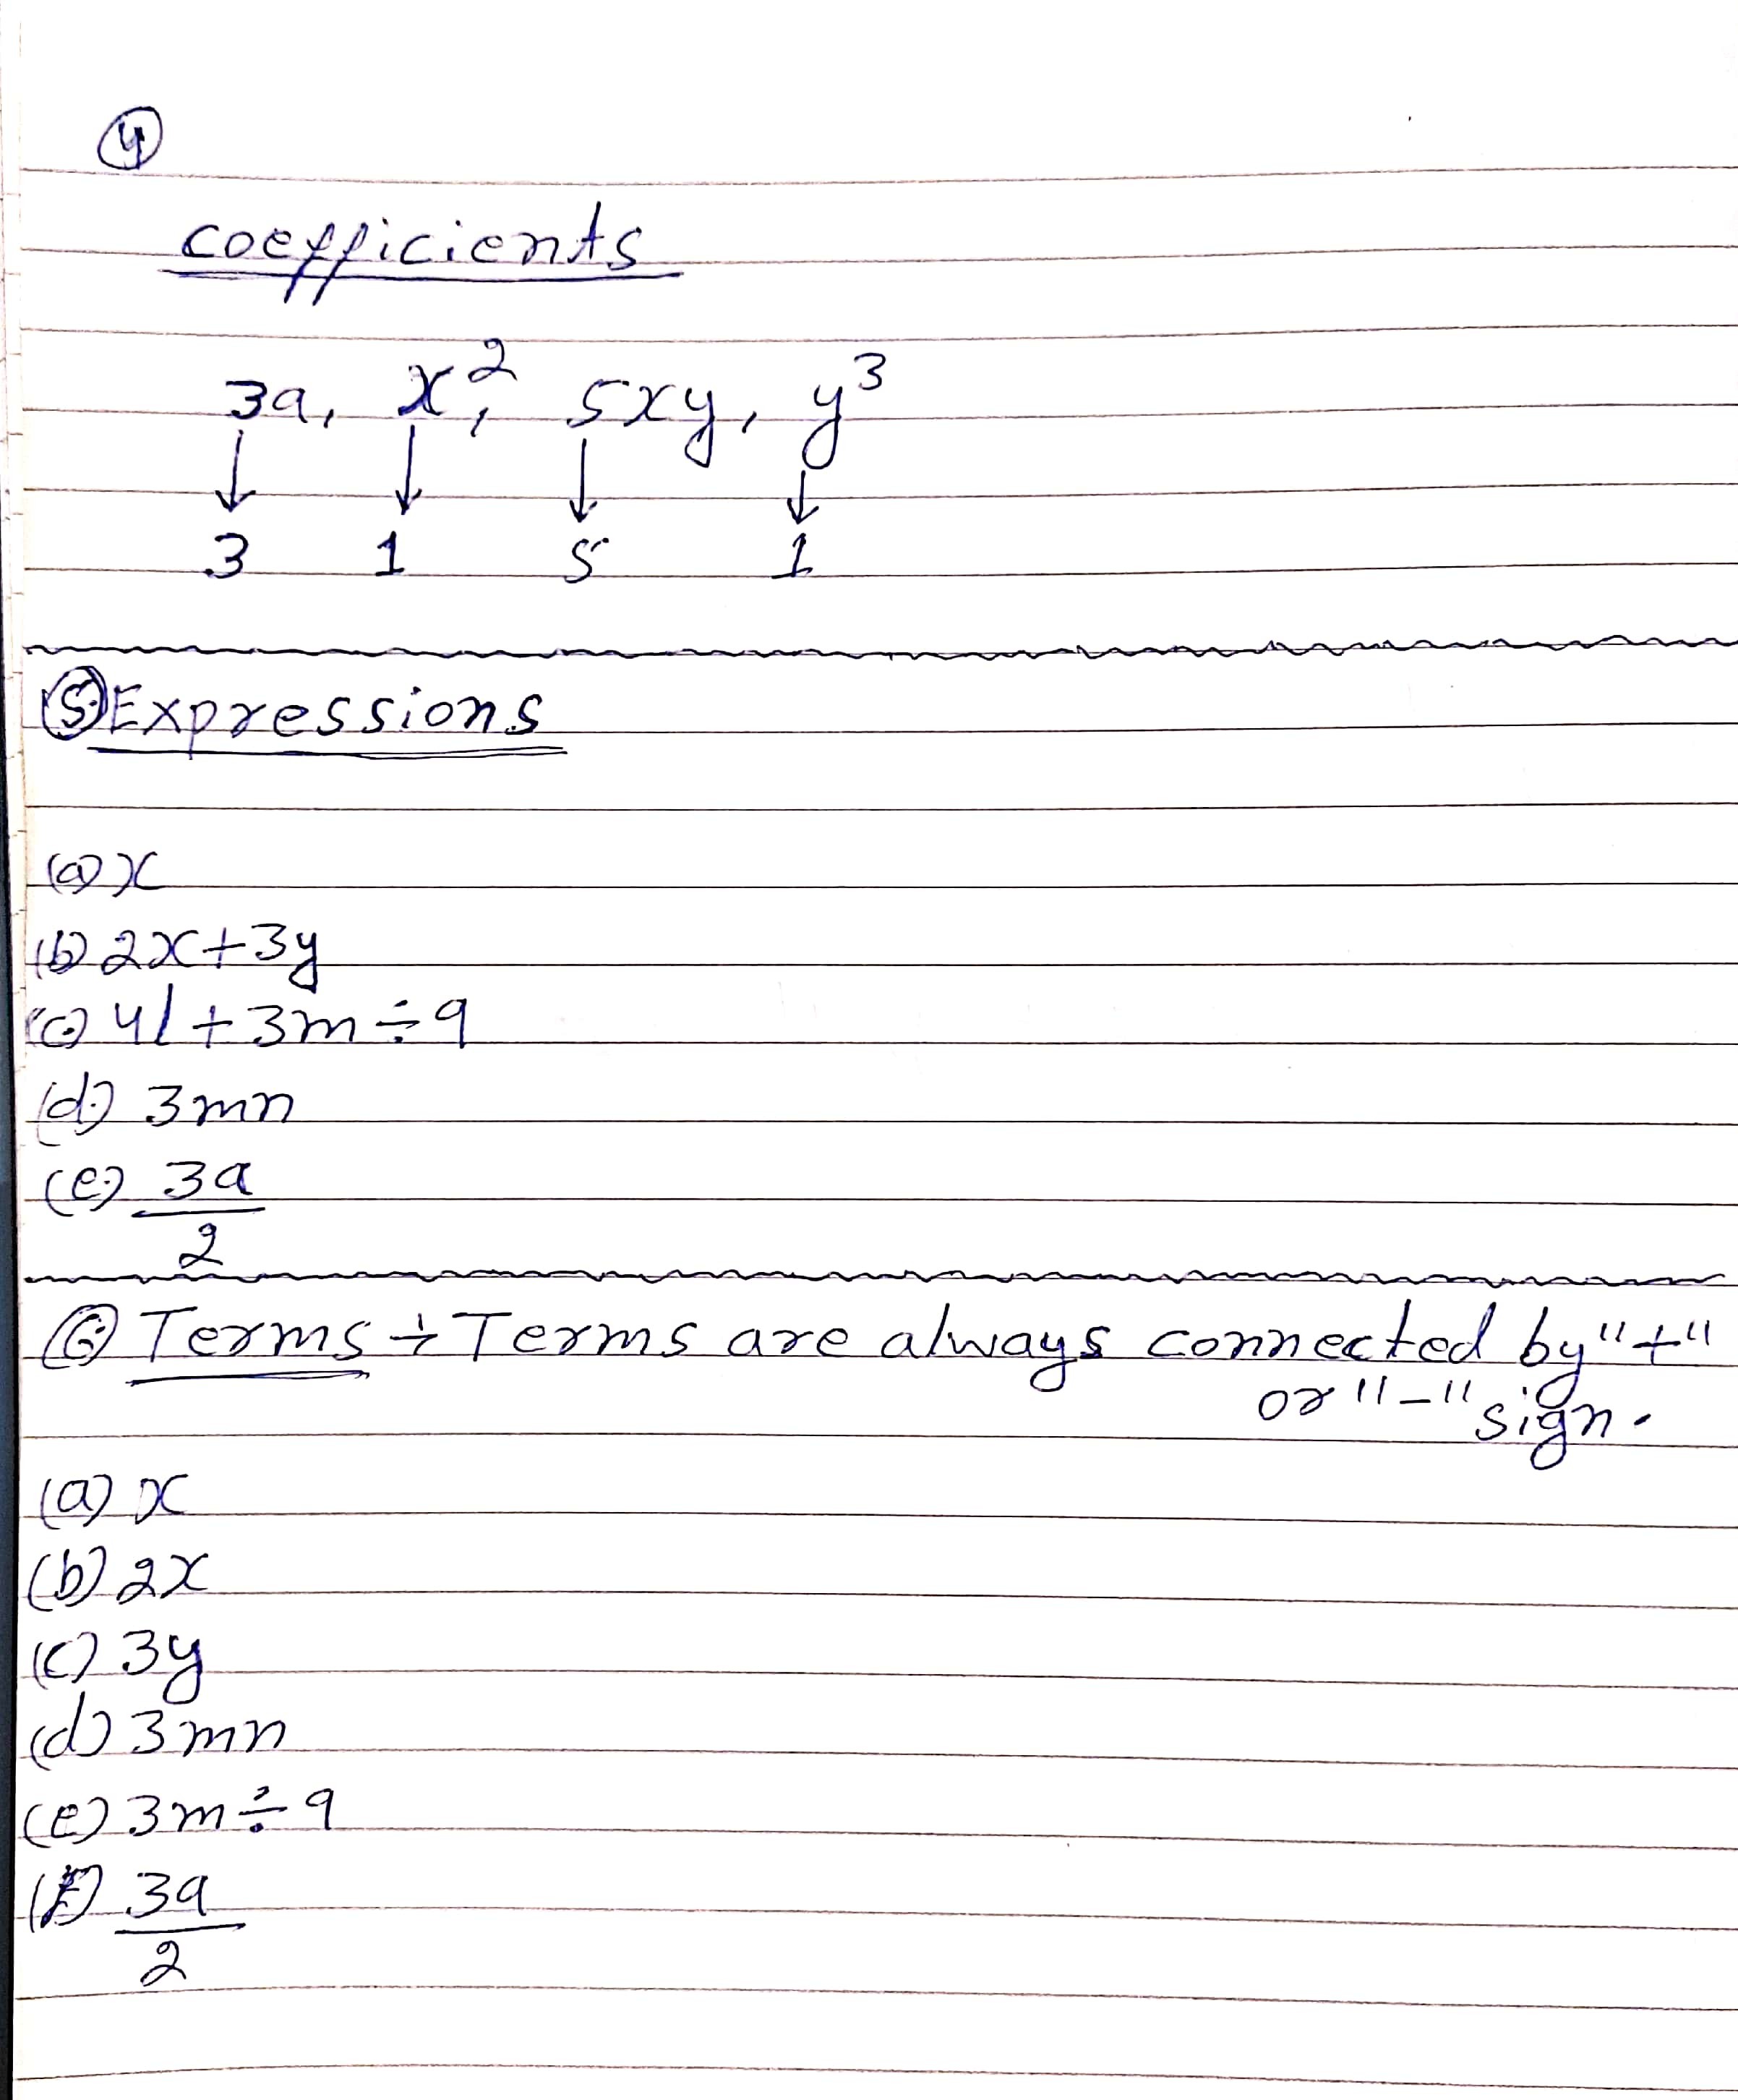 ④
coefficients
3a, x², 5xy, y³
↓ ↓ ↓ ↓
3 1 5 1
⑤ Expressions
(a) x
(b) 2x+3y
(c) 4l+3m÷9
(d) 3mn
(e) 3a
2
⑥ Terms ÷ Terms are always connected by "+"
or "-" sign.
(a) x
(b) 2x
(c) 3y
(d) 3mn
(e) 3m÷9
(f) 3a
2